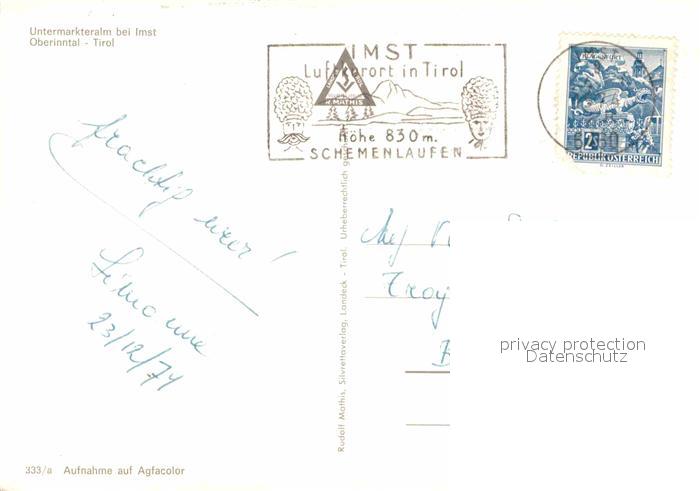 Untermarkteralm bei Imst
Oberinntal - Tirol
IMST
Luftkurort in Tirol
R. MATHIS
Höhe 830 m.
SCHEMENLAUFEN
2S
REPUBLIK ÖSTERREICH
prachtig weer!
23/12/74
Rudolf Mathis, Silvrettaverlag, Landeck - Tirol. Urheberrechtlich
Troy
B
privacy protection
Datenschutz
333/a Aufnahme auf Agfacolor